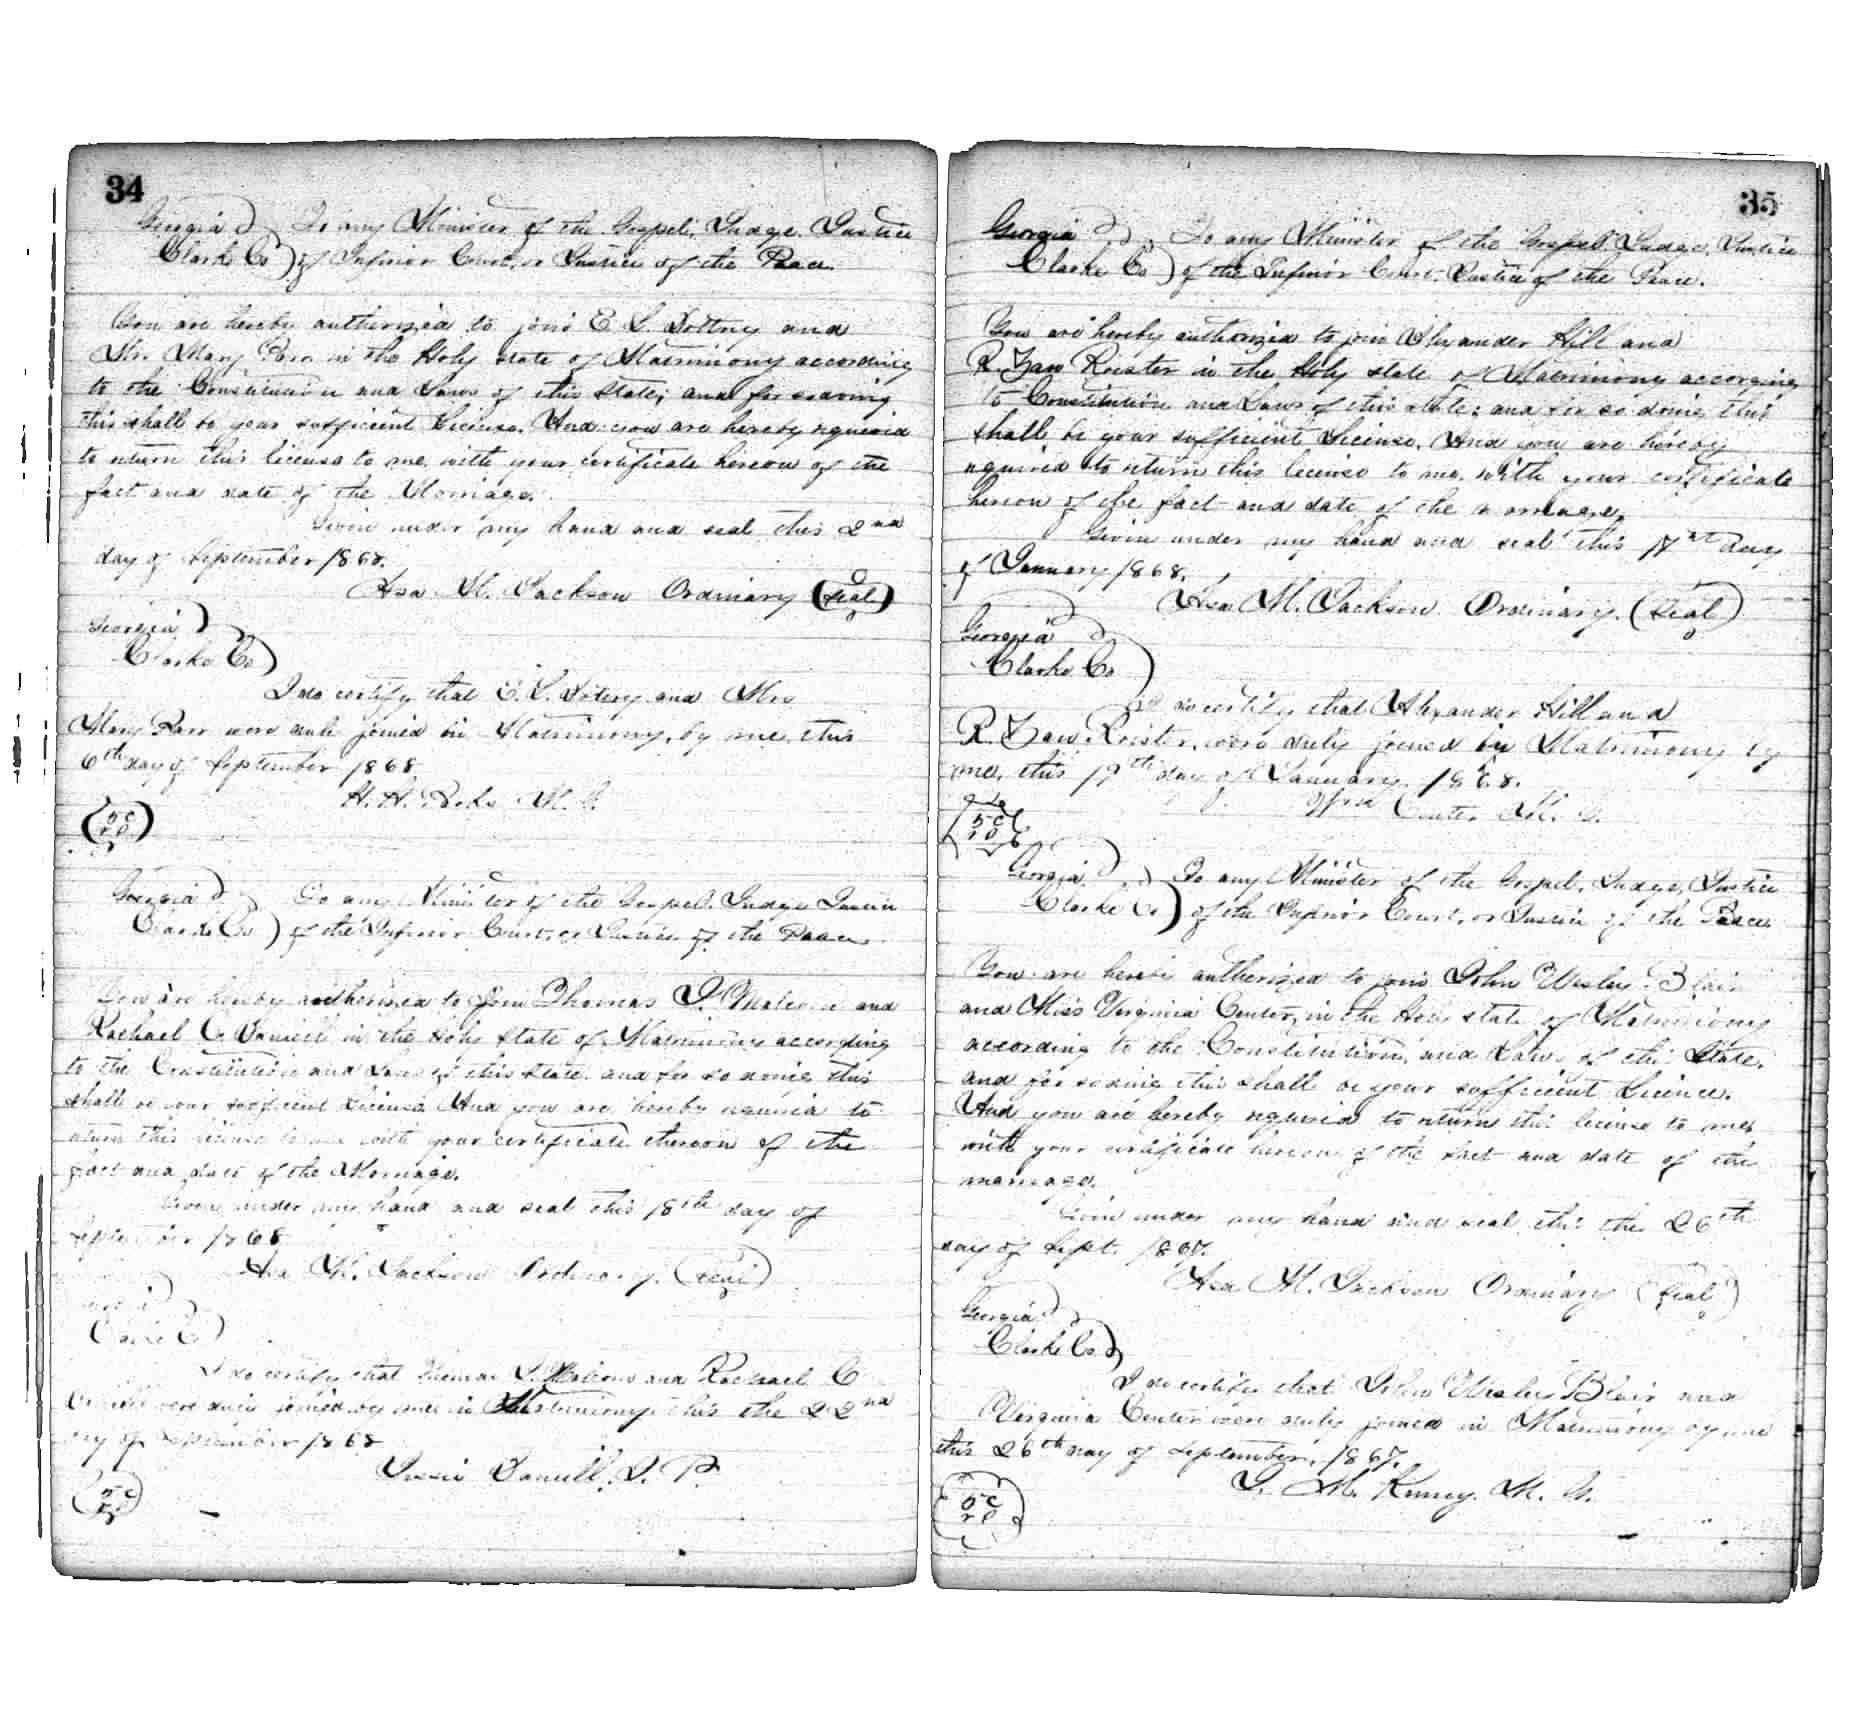 34
Georgia To any Minister of the Gospel, Judge, Justice
Clarke Co of Inferior Court, or Justice of the Peace.
You are hereby authorized to join E. L. and
Mrs. Mary in the Holy state of Matrimony according
to the Constitution and Laws of this State; and for so doing
this shall be your sufficient License. And you are hereby required
to return this license to me, with your certificate hereon of the
fact and date of the Marriage.
Given under my hand and seal this 2nd
day of September 1868.
Asa M. Jackson Ordinary (Seal)
Georgia
Clarke Co
I do certify that E. L. and Mrs
Mary were duly joined in Matrimony, by me, this
6th day of September 1868
H. H. M. G.
5c
Georgia To any Minister of the Gospel, Judge Justice
Clarke Co of the Inferior Court, or Justice of the Peace
You are hereby authorized to join Thomas and
Rachael C in the Holy State of Matrimony according
to the Constitution and Laws of this State and for so doing this
shall be your sufficient License And you are hereby required to
return this license to me with your certificate thereon of the
fact and date of the Marriage.
Given under my hand and seal this 18th day of
September 1868
Asa M. Jackson Ordinary. (Seal)
Georgia
Clarke Co
I do certify that Thomas and Rachael C
were duly joined by me in Matrimony this the 22nd
day of September 1868
J. P.
5c
35
Georgia To any Minister of the Gospel, Judge, Justice
Clarke Co of the Inferior Court, Justice of the Peace.
You are hereby authorized to join Alexander Hill and
R. in the Holy state of Matrimony according
to Constitution and Laws of this state; and for so doing this
shall be your sufficient License. And you are hereby
required to return this license to me, with your certificate
hereon of the fact and date of the marriage.
Given under my hand and seal this day
of January 1868.
Asa M. Jackson Ordinary. (Seal)
Georgia
Clarke Co
I do certify that Alexander Hill and
R. were duly joined in Matrimony by
me, this 19th day of January 1868.
Center M. G.
5c
Georgia To any Minister of the Gospel, Judge, Justice
Clarke Co of the Inferior Court, or Justice of the Peace.
You are hereby authorized to join John Wesley Blair
and Miss Virginia Center, in the Holy state of Matrimony
according to the Constitution, and Laws of this State.
and for so doing this shall be your sufficient License.
And you are hereby required to return this license to me,
with your certificate hereon of the fact and date of the
marriage.
Given under my hand and seal this the 26th
day of Sept. 1867.
Asa M. Jackson Ordinary (Seal)
Georgia
Clarke Co.
I do certify that John Wesley Blair and
Virginia Center were duly joined in Matrimony by me
this 26th day of September, 1867.
M. M. G.
5c